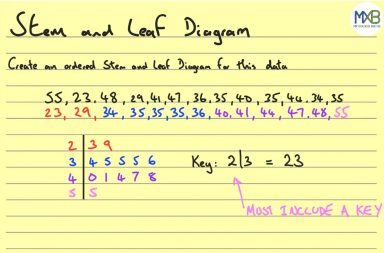 Stem and Leaf Diagram
MXB
Create an ordered Stem and Leaf Diagram for this data
55, 23, 48, 29, 41, 47, 36, 35, 40, 35, 44, 34, 35
23, 29, 34, 35, 35, 35, 36, 40, 41, 44, 47, 48, 55
2 | 3 9
3 | 4 5 5 5 6 Key: 2|3 = 23
4 | 0 1 4 7 8
5 | 5
MOST INCLUDE A KEY